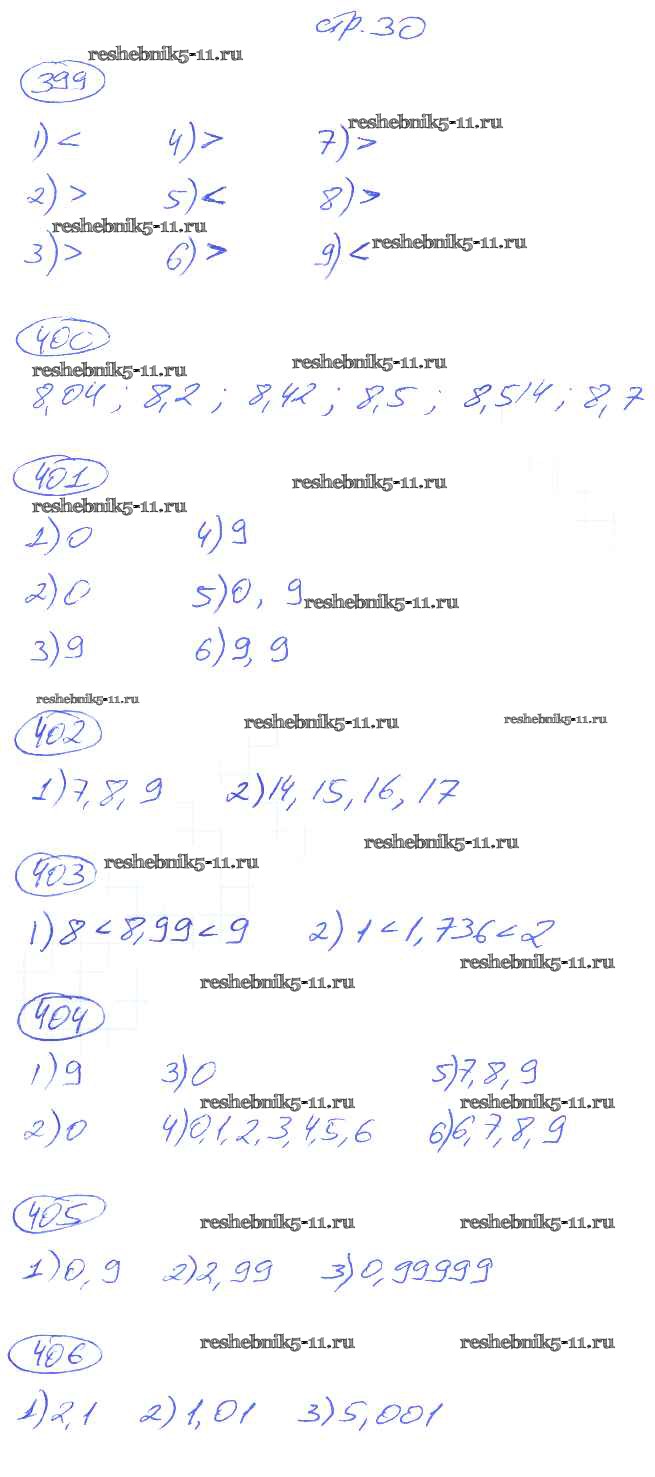 стр. 30
reshebnik5-11.ru
399
reshebnik5-11.ru
1) < 4) > 7) >
2) > 5) < 8) >
reshebnik5-11.ru
3) > 6) > 9) < reshebnik5-11.ru
400
reshebnik5-11.ru reshebnik5-11.ru
8,04 ; 8,2 ; 8,42 ; 8,5 ; 8,514 ; 8,7
401
reshebnik5-11.ru reshebnik5-11.ru
1) 0 4) 9
2) 0 5) 0, 9 reshebnik5-11.ru
3) 9 6) 9, 9
reshebnik5-11.ru
402 reshebnik5-11.ru reshebnik5-11.ru
1) 7, 8, 9 2) 14, 15, 16, 17
reshebnik5-11.ru
403 reshebnik5-11.ru
1) 8 < 8,99 < 9 2) 1 < 1,736 < 2
reshebnik5-11.ru
reshebnik5-11.ru
404
1) 9 3) 0 5) 7, 8, 9
reshebnik5-11.ru reshebnik5-11.ru
2) 0 4) 0,1,2,3,4,5,6 6) 6,7,8,9
405 reshebnik5-11.ru reshebnik5-11.ru
1) 0,9 2) 2,99 3) 0,99999
406 reshebnik5-11.ru reshebnik5-11.ru
1) 2,1 2) 1,01 3) 5,001